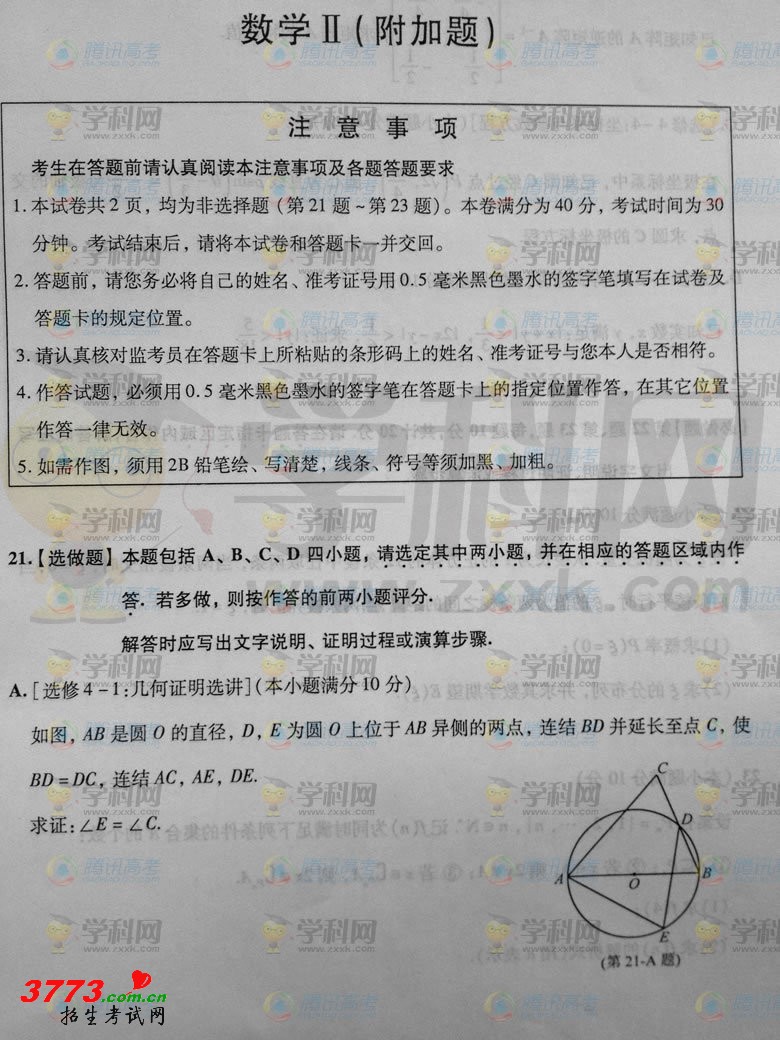 数学Ⅱ(附加题)
注 意 事 项
考生在答题前请认真阅读本注意事项及各题答题要求
1. 本试卷共2页，均为非选择题（第21题~第23题）。本卷满分为40分，考试时间为30
分钟。考试结束后，请将本试卷和答题卡一并交回。
2. 答题前，请您务必将自己的姓名、准考证号用0.5毫米黑色墨水的签字笔填写在试卷及
答题卡的规定位置。
3. 请认真核对监考员在答题卡上所粘贴的条形码上的姓名、准考证号与您本人是否相符。
4. 作答试题，必须用0.5毫米黑色墨水的签字笔在答题卡上的指定位置作答，在其它位置
作答一律无效。
5. 如需作图，须用2B铅笔绘、写清楚，线条、符号等须加黑、加粗。
21.【选做题】本题包括A、B、C、D四小题，请选定其中两小题，并在相应的答题区域内作
答. 若多做，则按作答的前两小题评分.
解答时应写出文字说明、证明过程或演算步骤.
A. [选修4-1:几何证明选讲](本小题满分10分)
如图，AB是圆O的直径，D，E为圆O上位于AB异侧的两点，连结BD并延长至点C，使
BD=DC，连结AC，AE，DE.
求证:∠E=∠C.
C
D
A
O
B
E
(第21-A题)
学科网
www.zxxk.com
腾讯高考
3773.com.cn
招生考试网